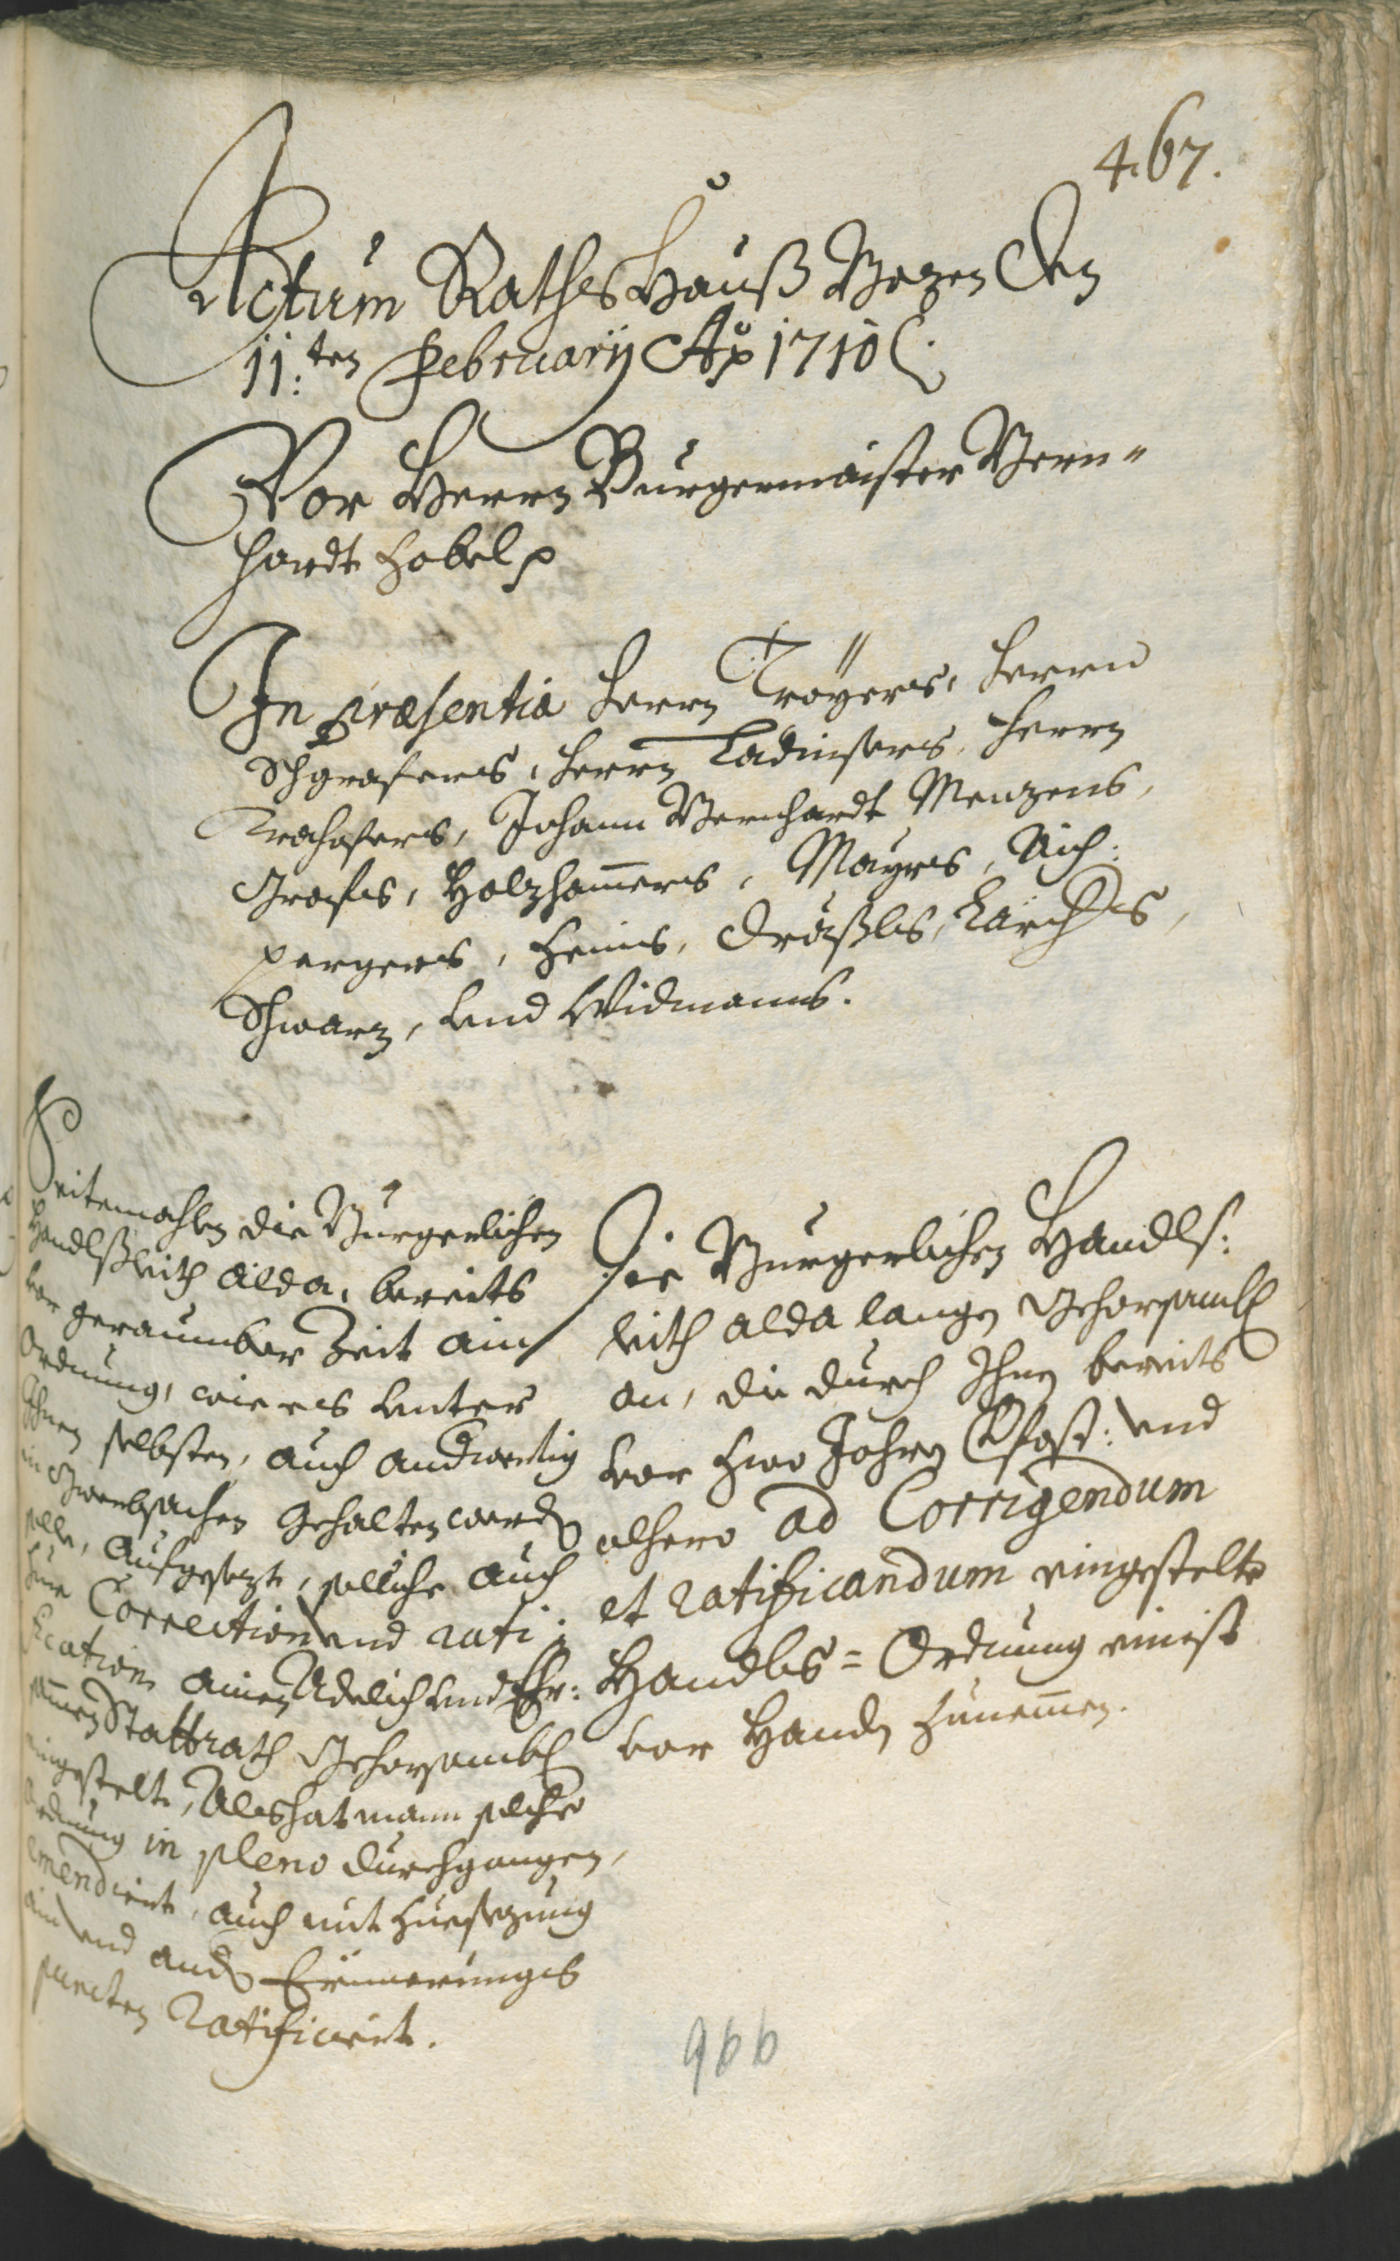 467.
Actum Raths Hauß Bozen den
11:ten February Ao 1710
Vor Herrn Burgermaister Bern=
hardt Hobel
In præsentia Herrn Troÿers, Herrn
Schgrafers, Herrn Ladinsers, Herrn
Krahofers, Johann Bernhardt Menzens,
Grafs, Holzhamers, Mayrs, Aich:
pergers, Heinis, Draxls, Lärchs,
Schwarz, und Widmanns.
Seitemahlen die Burgerlichen
Handlßleith alda, bereits
vor geraumber Zeit ain
Ordnung, wie es unter
Ihnen selbsten, auch andwertig
in Gwerbsachen gehalten werden
solle, aufgesezt, solliche auch
zur Correction und rati:
fication ainen Adelich und Ehr:
samen Stattrath gehorsambl
eingestelt, Als hat mann solche
Ordnung in pleno durchgangen,
emendiert, auch mit zuesezung
ain und andern Erinnerungs
puncten ratificiert.
Die Burgerlichen Handls:
leith alda langen gehorsambl
an, die durch Ihnen bereits
vor zwo Jahrn verfast: und
alhero ad Corrigendum
et ratificandum eingestelte
Handls=Ordnung einist
vor Handen zunemen.
966